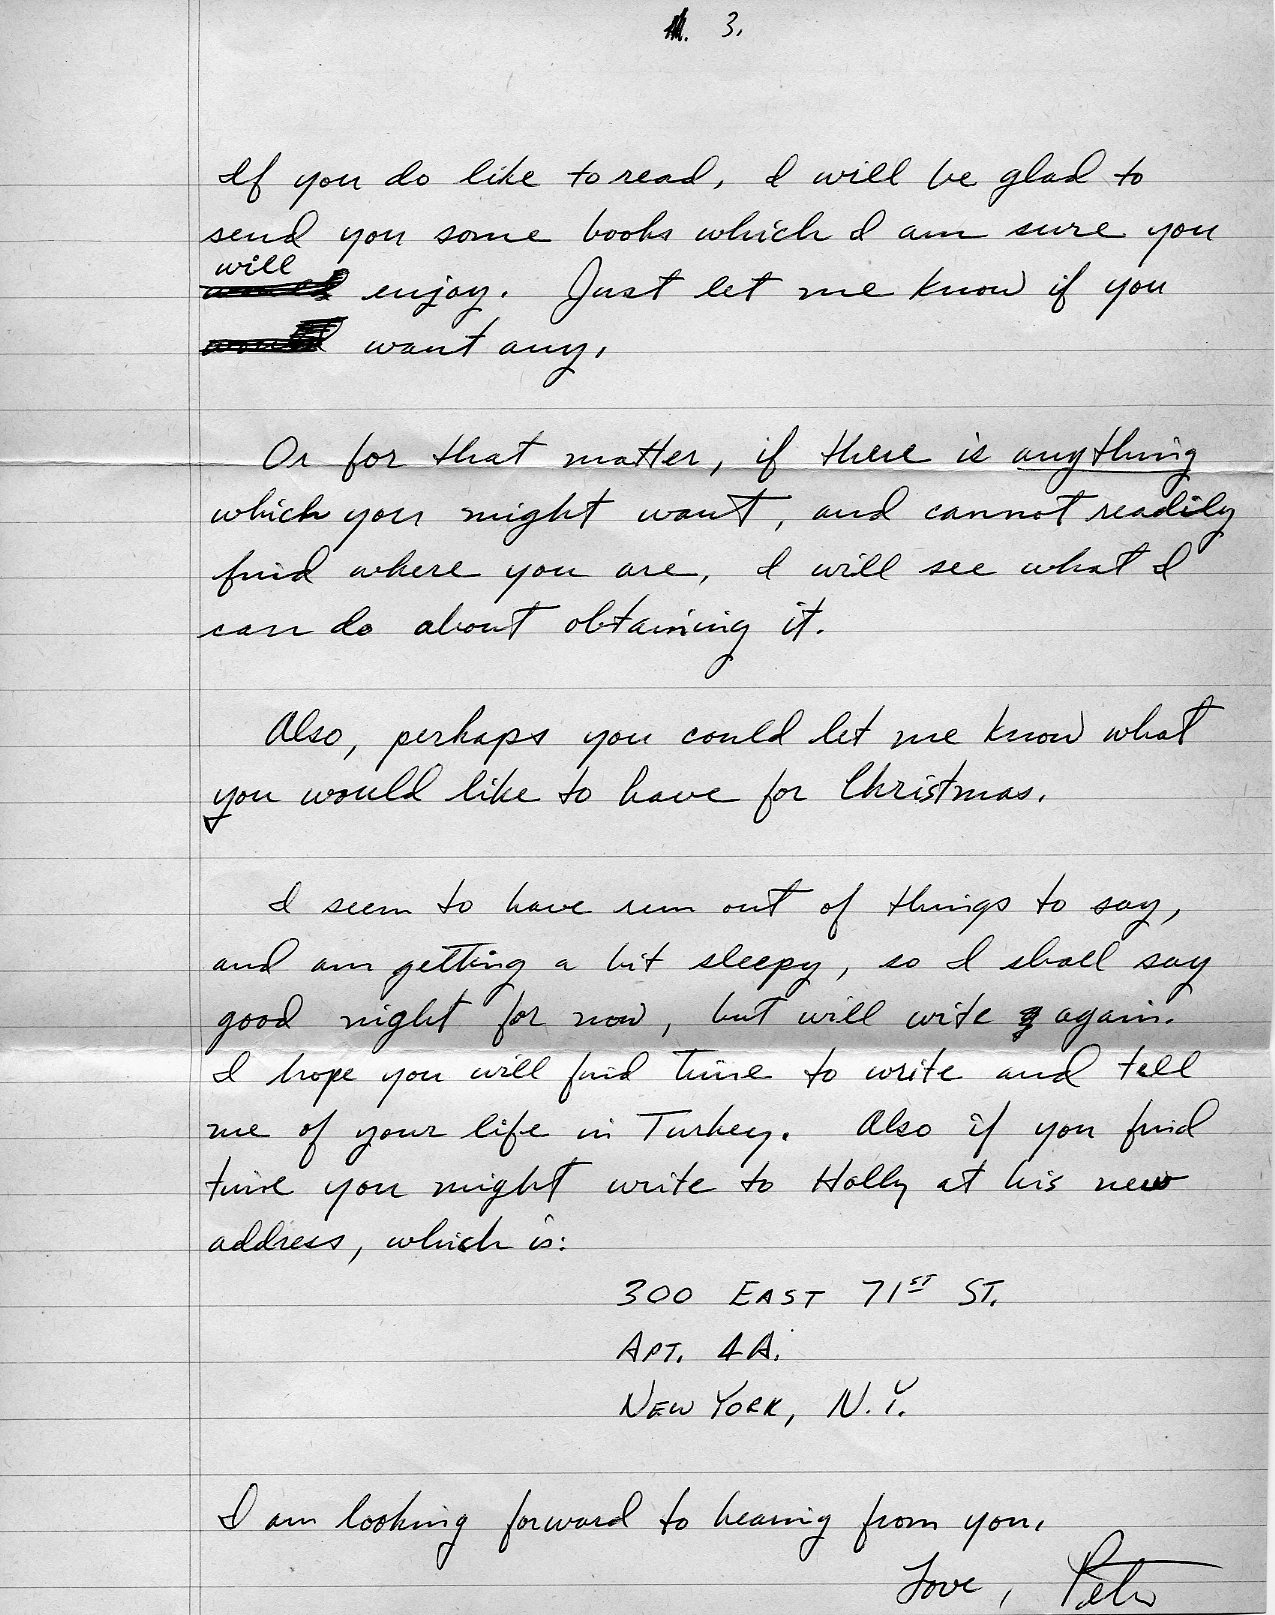 3.
If you do like to read, I will be glad to
send you some books which I am sure you
will
would enjoy. Just let me know if you
would want any.
Or for that matter, if there is anything
which you might want, and cannot readily
find where you are, I will see what I
can do about obtaining it.
Also, perhaps you could let me know what
you would like to have for Christmas.
I seem to have run out of things to say,
and am getting a bit sleepy, so I shall say
good night for now, but will wite again.
I hope you will find time to write and tell
me of your life in Turkey. Also if you find
time you might write to Holly at his new
address, which is:
300 EAST 71ST ST.
APT. 4A.
NEW YORK, N.Y.
I am looking forward to hearing from you.
Love, Peter